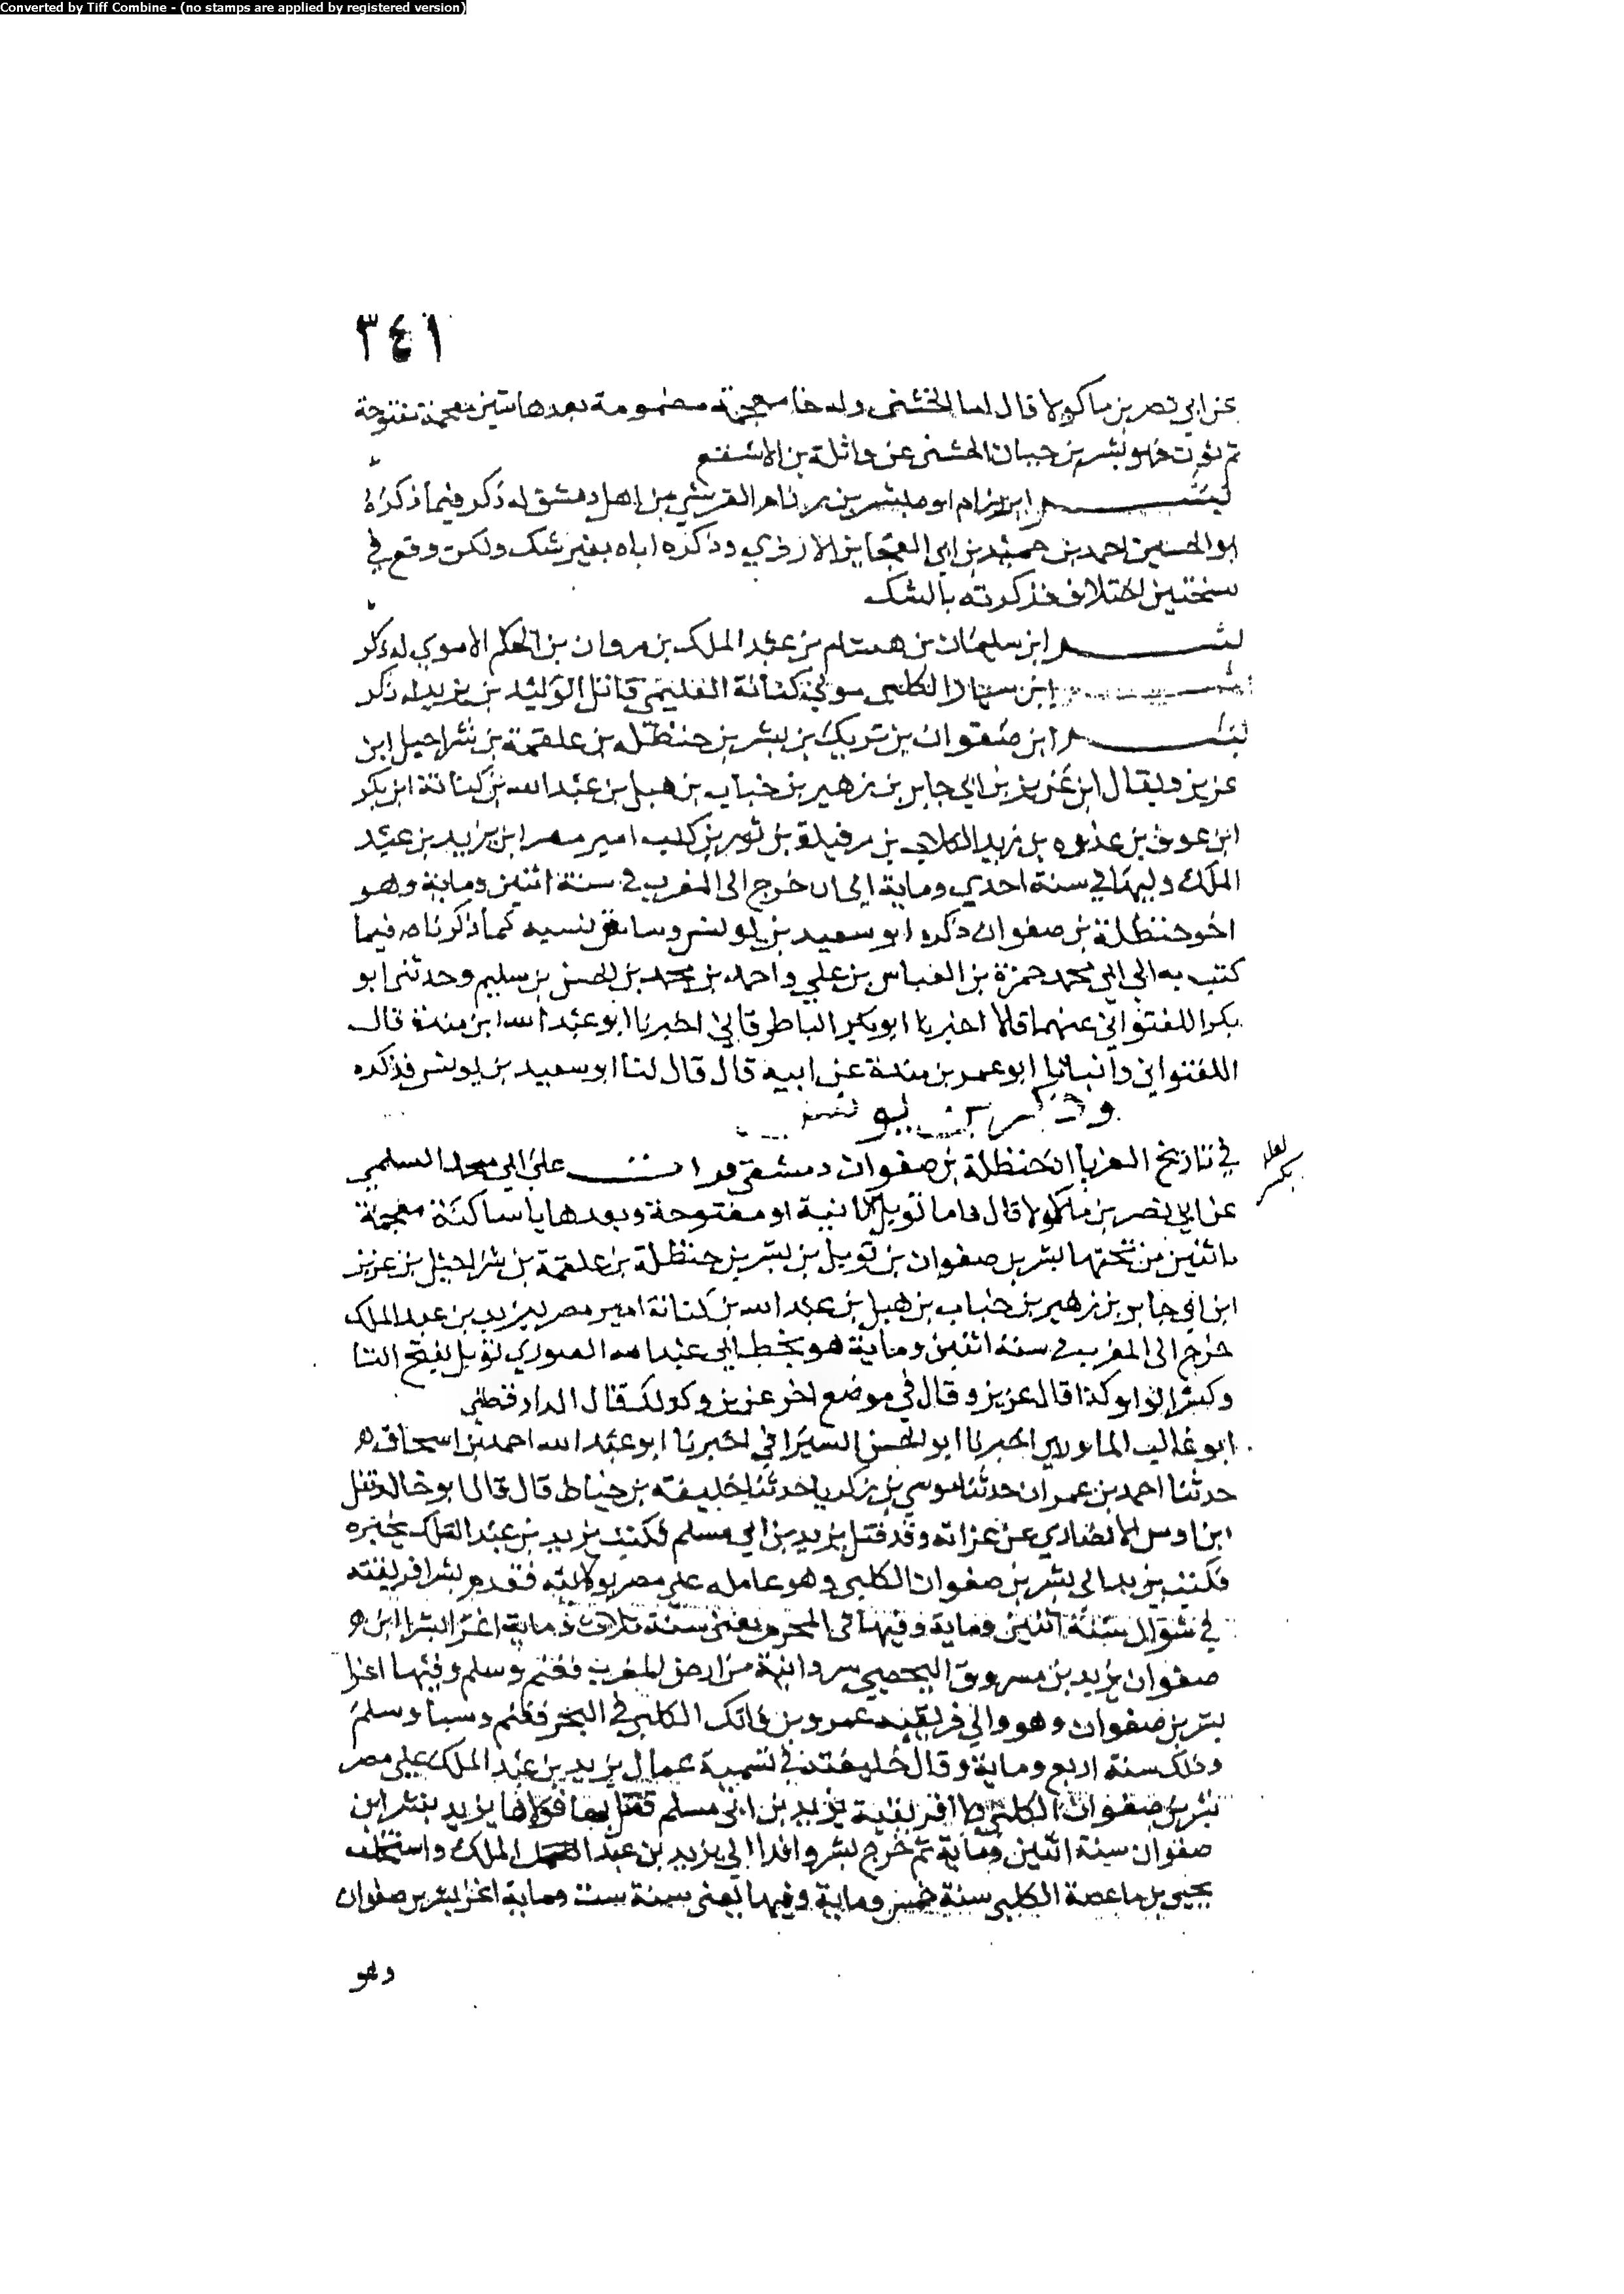 Converted by Tiff Combine - (no stamps are applied by registered version)
٣٤١
عن ابي نصر بن ماكولا قال اما الخشني وله خا معجمة مضمومة بعدها شين معجمة مفتوحة
ثم نون فهو بشر بن حيان الخشني عن واثلة بن الاسقع
بشر ابن بزام ابو مبشر بن القرشي من اهل دمشق له ذكر فيما ذكره
ابو الحسين احمد بن حميد بن ابي العجايز الازدي وذكره اباه بغير شك ولكن وقع في
نسختين اختلاف فذكرته بالشك
بشر ابن سليمان بن هشام بن عبد الملك بن مروان بن الحكم الاموي له ذكر
ابن الكلبي مولي كنانة قاتل الوليد بن يزيد له ذكر
بشر ابن صفوان بن تويل بن بشر بن حنظلة بن علقمة بن شراحيل ابن
عزيز ويقال ابن عزيز بن ابي جابر بن زهير بن خباب بن هبل بن عبد الله بن كنانة ابن بكر
ابن عوف بن عذره بن زيد بن رفيدة بن ثور بن كلب امير مصر ابن يزيد بن عبد
الملك وليها في سنة احدي وماية الى ان خرج الى المغرب في سنة اثنين وماية وهو
اخو حنظلة بن صفوان ذكره ابو سعيد بن يونس وساق نسبه كما ذكرناه فيما
كتب به الي ابي محمد حمزة بن العباس بن علي واحمد بن محمد بن الحسن بن سليم وحدثني ابو
بكر اللفتواني عنهما قالا اخبرنا ابو بكر الباطرقاني اخبرنا ابو عبد الله ابن مندة قال
اللفتواني وانبانا ابو عمر بن مندة عن ابيه قال قال لنا ابو سعيد بن يونس فذكره
وذكر بن يونس
في تاريخ الغربا ان حنظلة بن صفوان دمشقي قرات على ابي محمد السلمي
لعله بكسر
عن ابي نصر بن ماكولا قال واما تويل الثانية او مفتوحة وبعدها يا ساكنة معجمة
باثنين من تحتها بشر بن صفوان بن تويل بن بشر بن حنظلة بن علقمة بن شراحيل بن عزيز
ابن ابي جابر بن زهير بن خباب بن هبل بن عبد الله بن كنانة امير مصر ليزيد بن عبد الملك
خرج الى المغرب في سنة اثنين وماية هو بخط ابي عبد الله الصوري تويل بفتح التا
وكسر الواو كذا قال عزيز وقال في موضع اخر عزيز وكذلك قال الدارقطني
ابو غالب الماوردي اخبرنا ابو الحسن السيرافي اخبرنا ابو عبد الله احمد بن اسحاق
حدثنا احمد بن عمران حدثنا موسي بن زكريا حدثنا خليفة بن خياط قال قال ابو خالد قفل
ابن اوس الانصاري عن غزاته وقد قتل يزيد بن ابي مسلم فكتب يزيد بن عبد الملك يخبره
فكتب يزيد الى بشر بن صفوان الكلبي وهو عامله علي مصر بولايته فقدم بشر افريقية
في شوال سنة اثنين وماية وفيها في المحرم يعني سنة ثلاث وماية اغزا بشرا ابن
صفوان يزيد بن مسروق اليحصبي سردانية من ارض المغرب فغنم وسلم وفيها اغزا
بشر بن صفوان وهو والي افريقية عمرو بن فاتك الكلبي في البحر فغنم وسبا وسلم
وذلك سنة اربع وماية وقال خليفة في تسمية عمال يزيد بن عبد الملك علي مصر
بشر بن صفوان الكلبي افريقية يزيد بن ابي مسلم فقتل بها فولاها يزيد بشر ابن
صفوان سنة اثنين وماية ثم خرج بشر وافدا الي يزيد بن عبد الملك واستخلف
يحيي بن ماعصة الكلبي سنة خمس وماية وفيها يعني سنة ست وماية اغزا بشر بن صفوان
وهو